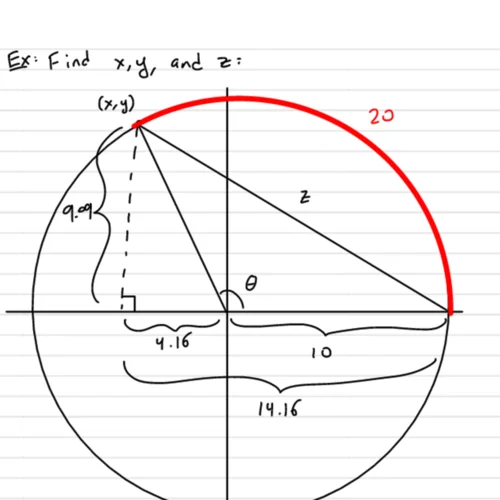 Ex: Find x, y, and z:
(x,y)
20
9.09
z
θ
4.16
10
14.16